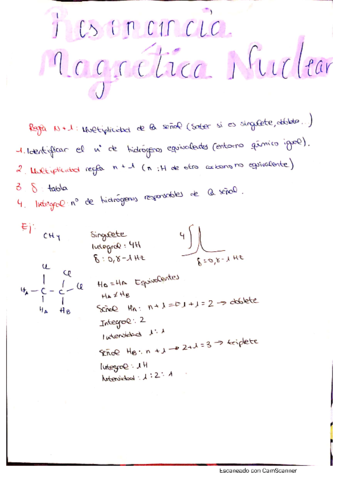 Resonancia
Magnética Nuclear
Regla N+1: Multiplicidad de la señal (Saber si es singulete, doblete...)
1. Identificar el nº de hidrógenos equivalentes (entorno químico igual).
2 Multiplicidad regla n+1 (n: H de otro carbono no equivalente)
3 δ tabla
4. Integral: nº de hidrógenos responsables de la señal.
Ej:
CH4
Singulete
Integral: 4H
δ = 0,8-1 Hz
4
δ = 0,8-1 Hz
Cl
Cl
HA - C - C - Cl
HA HB
HA = HA Equivalentes
HA ≠ HB
Señal HA: n+1 = 1+1 = 2 → doblete
Integral: 2
Intensidad 1:1
Señal HB: n+1 → 2+1 = 3 → triplete
Integral: 1H
Intensidad: 1:2:1
Escaneado con CamScanner